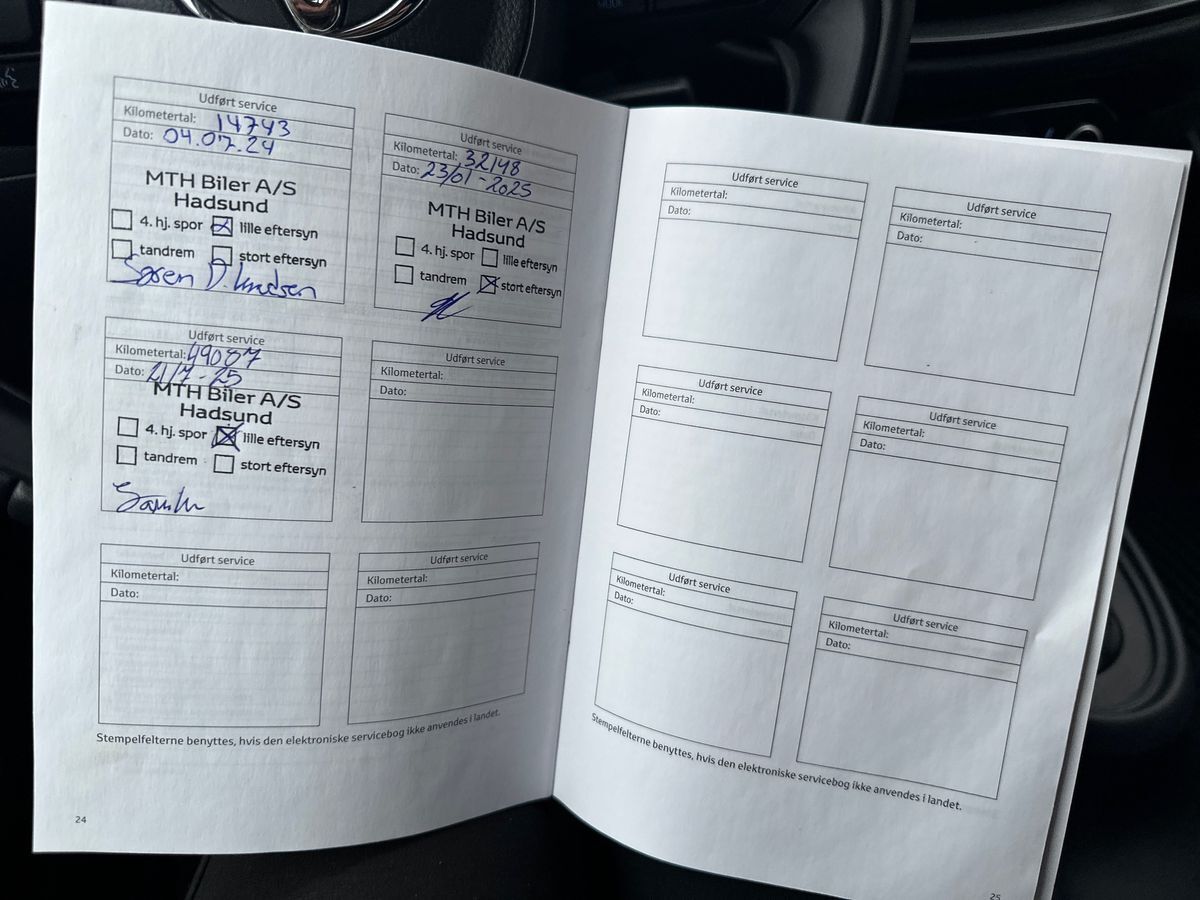 Udført service
Kilometertal: 14743
Dato: 04.07.24
MTH Biler A/S
Hadsund
4. hj. spor lille eftersyn
tandrem stort eftersyn
Søren D. Knudsen
Udført service
Kilometertal: 32148
Dato: 23/01-2025
MTH Biler A/S
Hadsund
4. hj. spor lille eftersyn
tandrem stort eftersyn
Udført service
Kilometertal: 49087
Dato: 21/7-25
MTH Biler A/S
Hadsund
4. hj. spor lille eftersyn
tandrem stort eftersyn
Udført service
Kilometertal:
Dato:
Udført service
Kilometertal:
Dato:
Udført service
Kilometertal:
Dato:
Stempelfelterne benyttes, hvis den elektroniske servicebog ikke anvendes i landet.
24
Udført service
Kilometertal:
Dato:
Udført service
Kilometertal:
Dato:
Udført service
Kilometertal:
Dato:
Udført service
Kilometertal:
Dato:
Udført service
Kilometertal:
Dato:
Udført service
Kilometertal:
Dato:
Stempelfelterne benyttes, hvis den elektroniske servicebog ikke anvendes i landet.
25